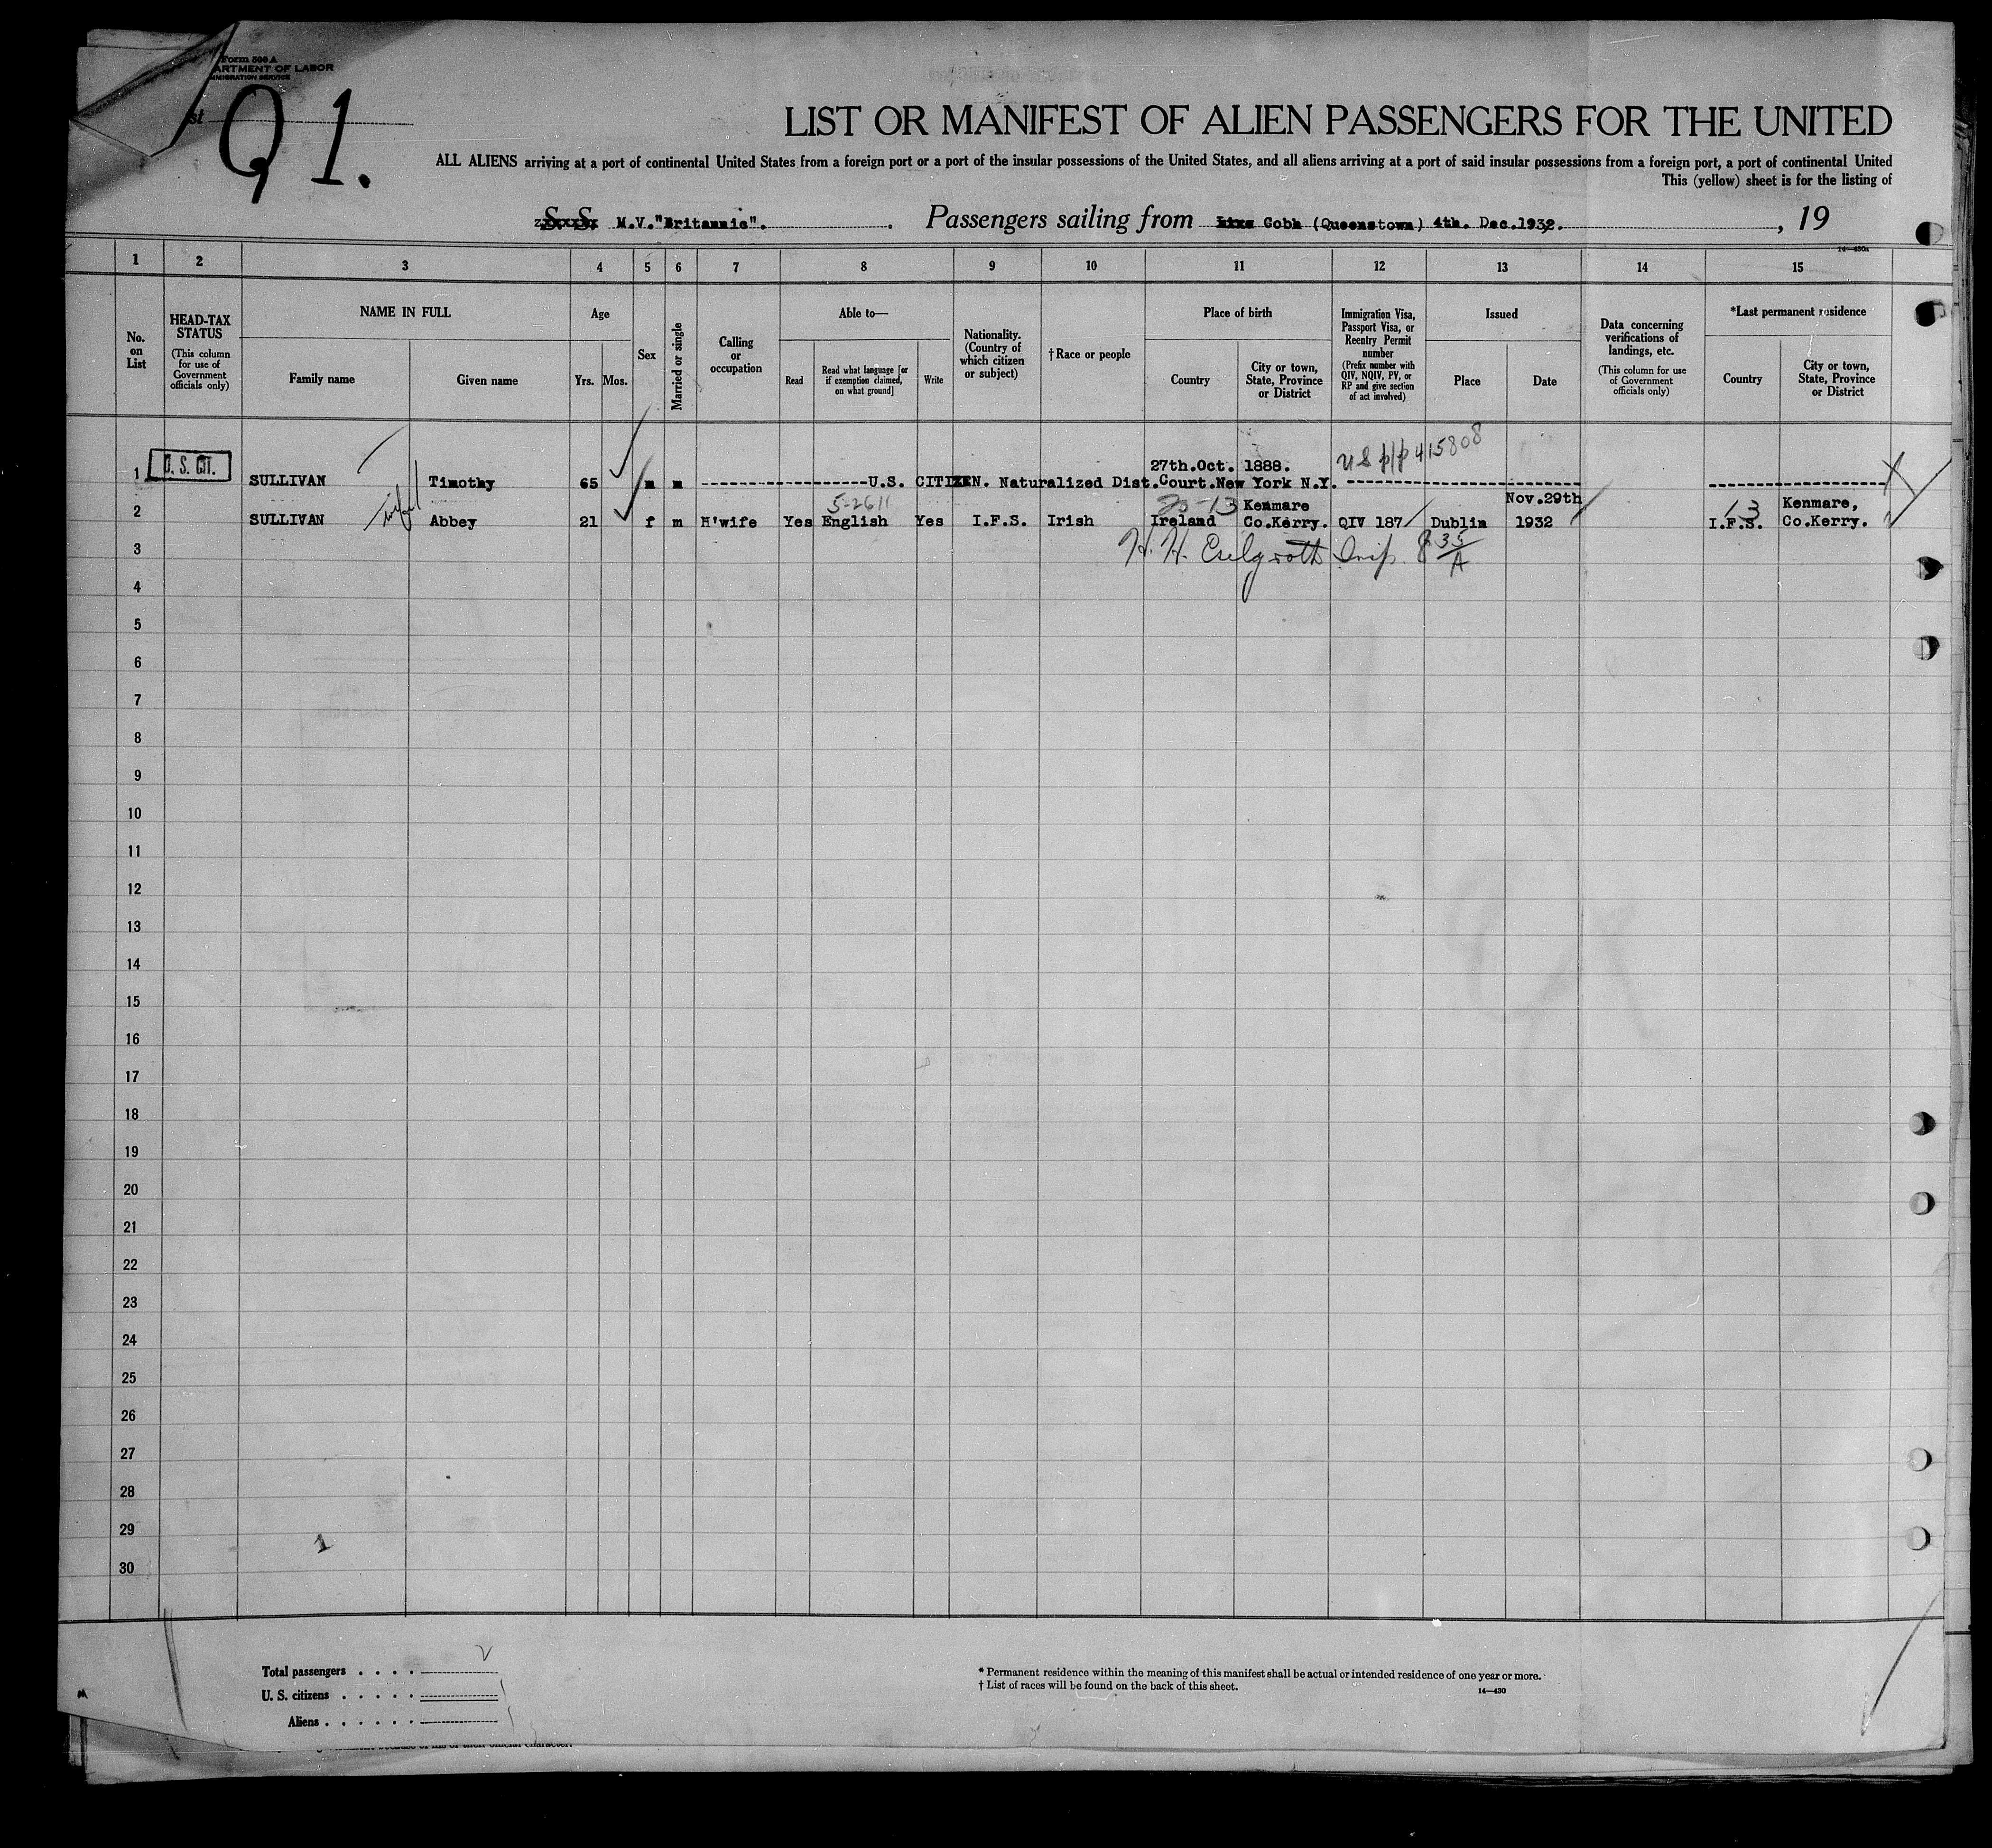 Form 500 A
ARTMENT OF LABOR
MMIGRATION SERVICE
st
Q 1.
LIST OR MANIFEST OF ALIEN PASSENGERS FOR THE UNITED
ALL ALIENS arriving at a port of continental United States from a foreign port or a port of the insular possessions of the United States, and all aliens arriving at a port of said insular possessions from a foreign port, a port of continental United
This (yellow) sheet is for the listing of
S. S. M.V."Britannic". Passengers sailing from Cobh (Queenstown) 4th. Dec.1932. , 19
14—430a
1 2 3 4 5 6 7 8 9 10 11 12 13 14 15
No. on List
HEAD-TAX STATUS (This column for use of Government officials only)
NAME IN FULL
Family name
Given name
Age
Yrs. Mos.
Sex
Married or single
Calling or occupation
Able to—
Read
Read what language [or if exemption claimed, on what ground]
Write
Nationality. (Country of which citizen or subject)
† Race or people
Place of birth
Country
City or town, State, Province or District
Immigration Visa, Passport Visa, or Reentry Permit number (Prefix number with QIV, NQIV, PV, or RP and give section of act involved)
Issued
Place
Date
Data concerning verifications of landings, etc. (This column for use of Government officials only)
*Last permanent residence
Country
City or town, State, Province or District
27th.Oct. 1888. U S p/p 415808
1 U. S. CIT. SULLIVAN Timothy 65 m m U.S. CITIZEN. Naturalized Dist.Court.New York N.Y.
5-2611 Kenmare Nov.29th 13 Kenmare,
2 SULLIVAN wife Abbey 21 f m H'wife Yes English Yes I.F.S. Irish Ireland Co.Kerry. QIV 187 Dublin 1932 I.F.S. Co.Kerry.
3
4
5
6
7
8
9
10
11
12
13
14
15
16
17
18
19
20
21
22
23
24
25
26
27
28
29
30
1
Total passengers . . . .
U. S. citizens . . . . .
Aliens . . . . . .
* Permanent residence within the meaning of this manifest shall be actual or intended residence of one year or more.
† List of races will be found on the back of this sheet.
14—430